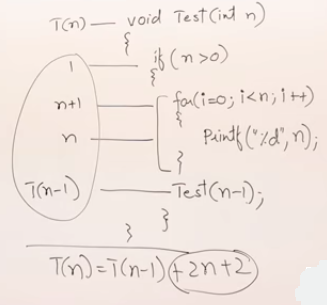 T(n) — void Test(int n)
{
1 — if(n>0)
{
n+1 — for(i=0; i<n; i++)
{
n — Printf("%d", n);
}
T(n-1) — Test(n-1);
}
}
T(n)=T(n-1)+2n+2